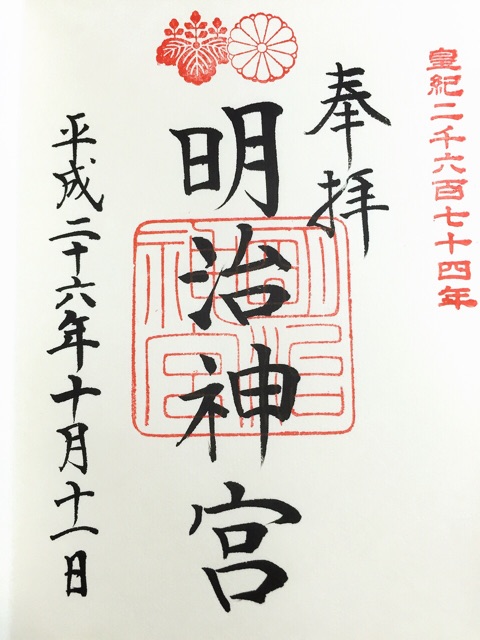 皇紀二千六百七十四年
奉拝
明治神宮
明治神宮
平成二十六年十月十一日